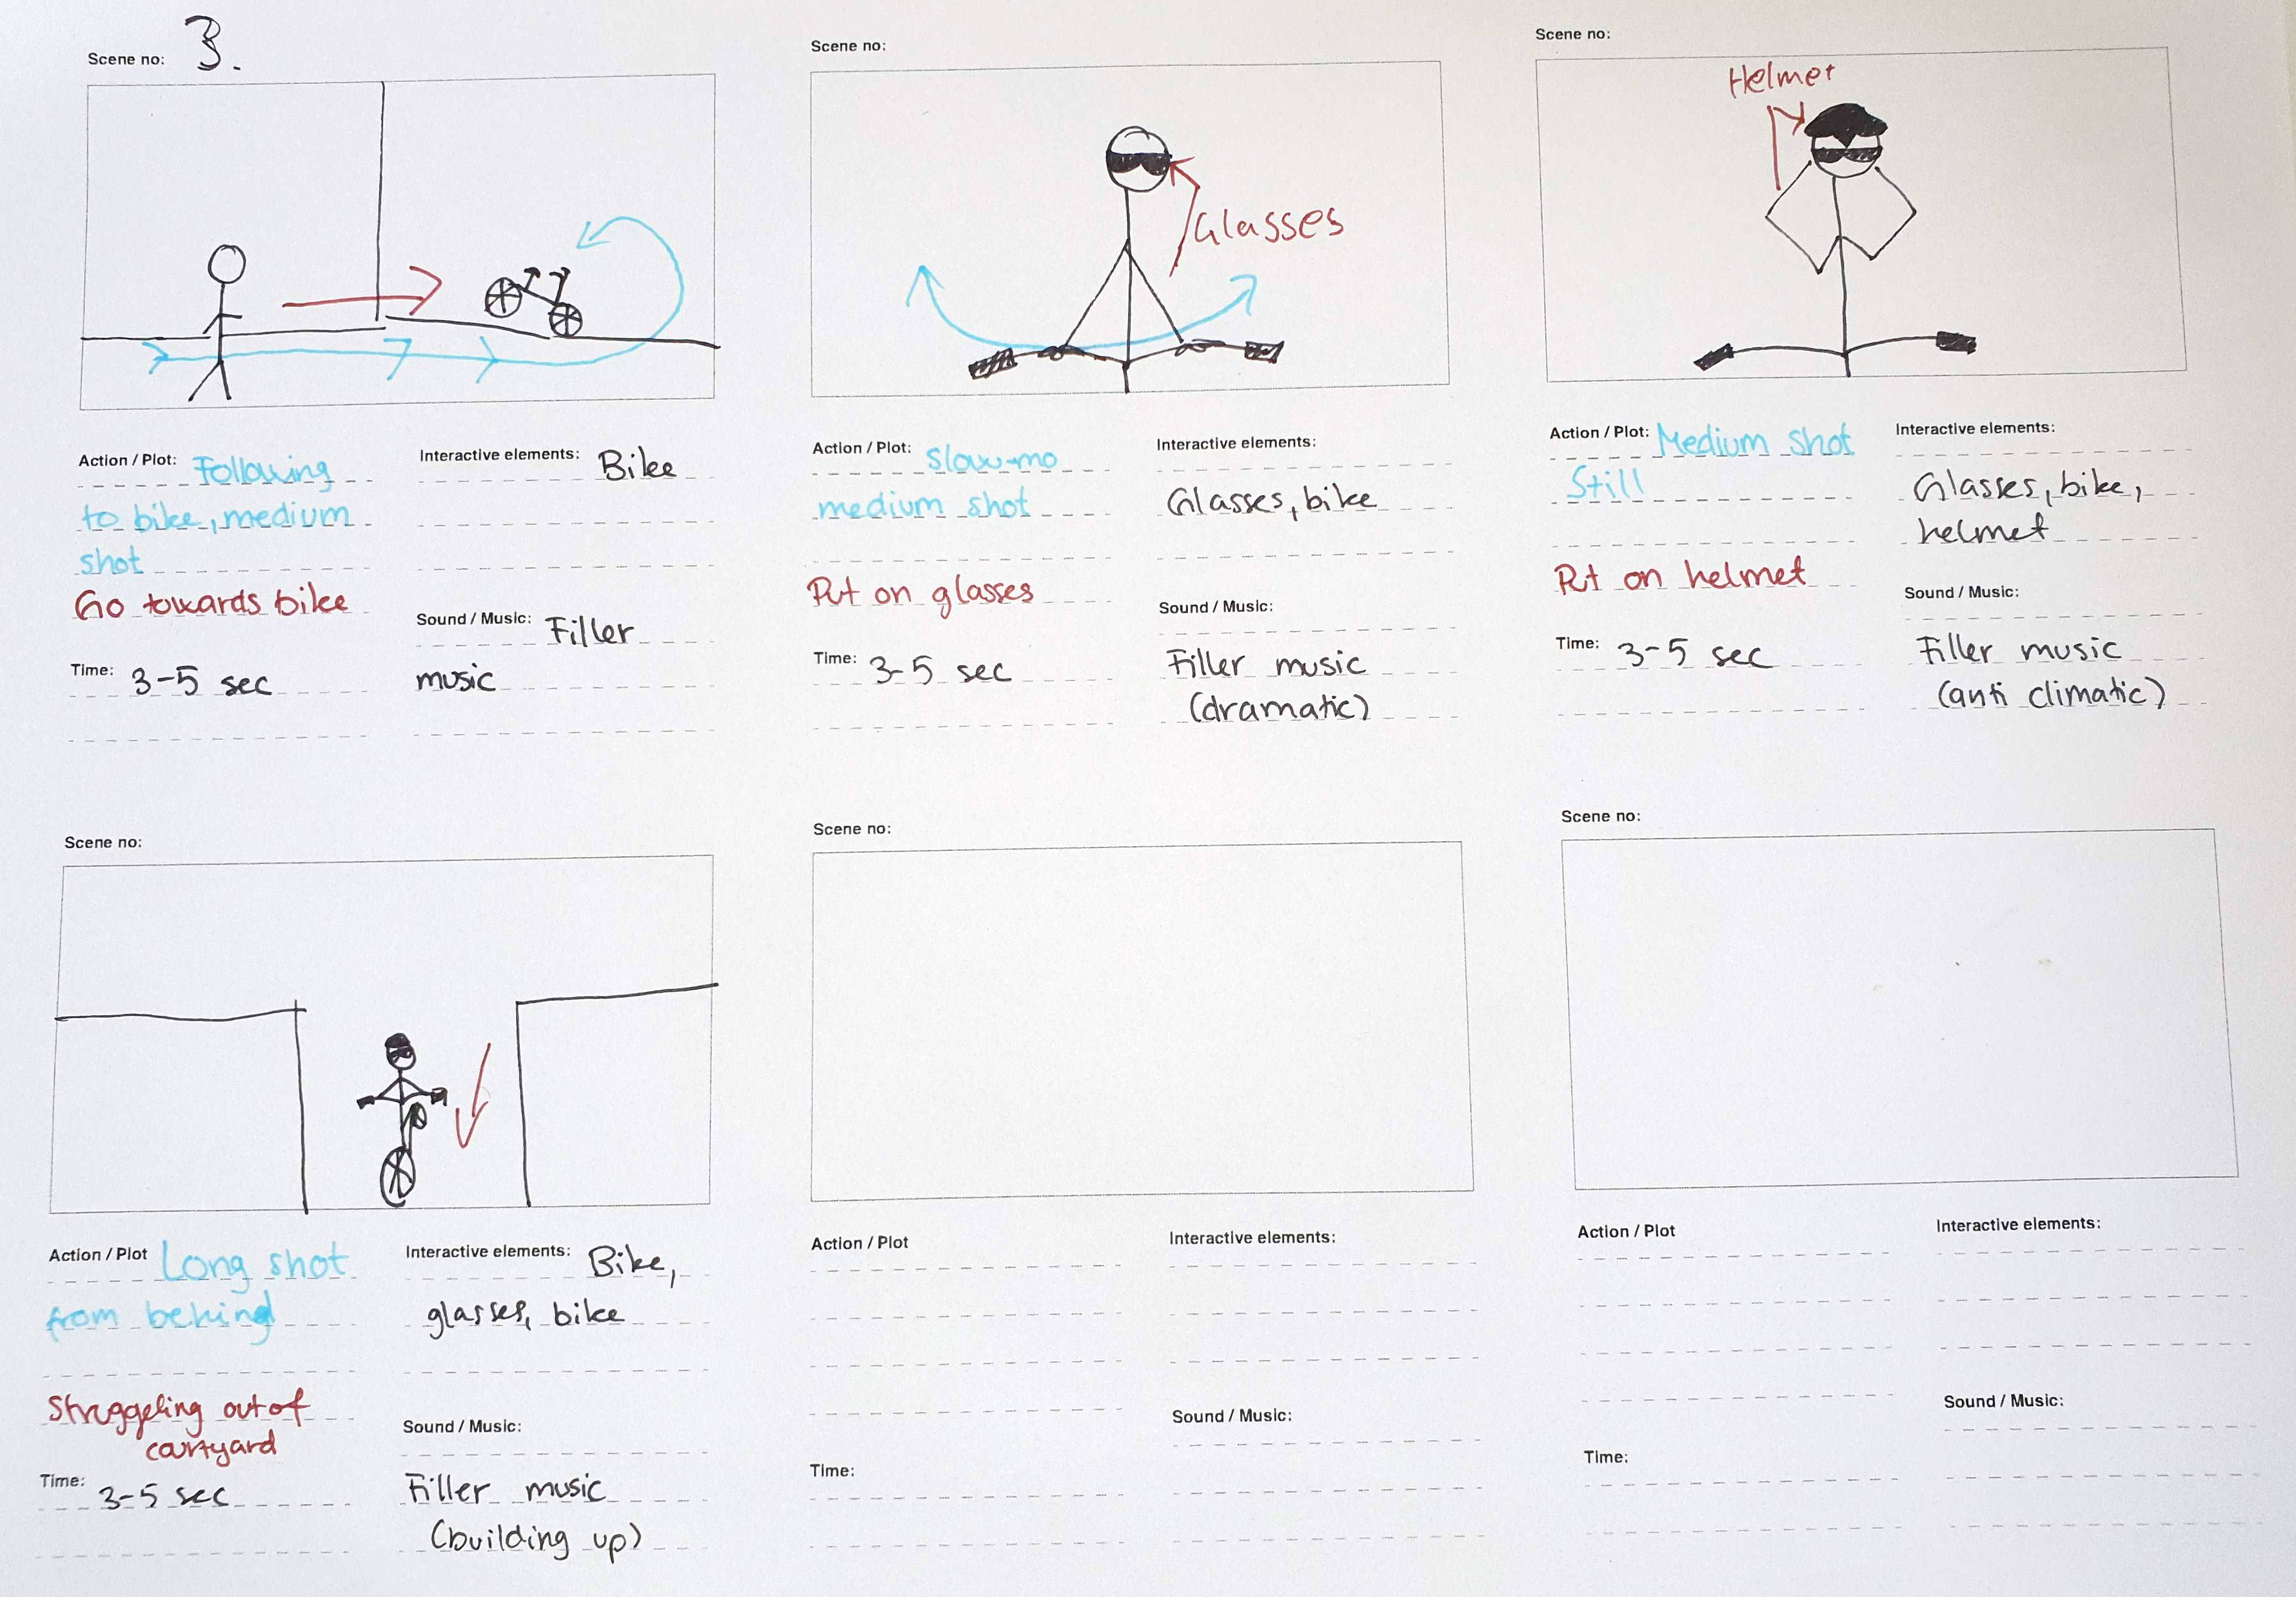 Scene no: 3.
Helmet
Action / Plot: Following
to bike, medium
shot
Go towards bike
Time: 3-5 sec
Interactive elements: Bike
Sound / Music: Filler
music
Scene no:
Glasses
Action / Plot: Slow-mo
medium shot
Put on glasses
Time: 3-5 sec
Interactive elements:
Glasses, bike
Sound / Music:
Filler music
(dramatic)
Scene no:
Action / Plot: Medium shot
Still
Put on helmet
Time: 3-5 sec
Interactive elements:
Glasses, bike,
helmet
Sound / Music:
Filler music
(anti climatic)
Scene no:
Action / Plot Long shot
from behind
Struggeling out of
courtyard
Time: 3-5 sec
Interactive elements: Bike,
glasses, bike
Sound / Music:
Filler music
(building up)
Scene no:
Action / Plot
Time:
Interactive elements:
Sound / Music:
Scene no:
Action / Plot
Time:
Interactive elements:
Sound / Music: